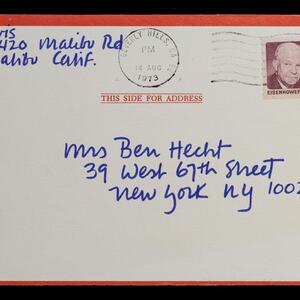 420 Malibu Rd
Malibu Calif.
BEVERLY HILLS, CA
PM
14 AUG
1973
EISENHOWER
THIS SIDE FOR ADDRESS
Mrs Ben Hecht
39 West 67th Street
New York NY 1002